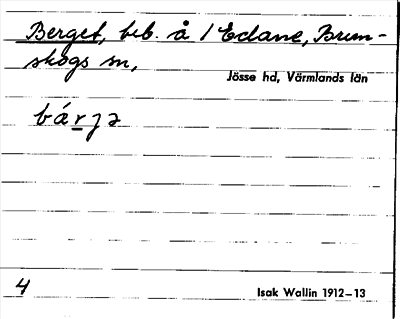 Berget, beb. å 1 Edane, Brun-
skogs sn,
Jösse hd, Värmlands län
bárjə
4
Isak Wallin 1912–13